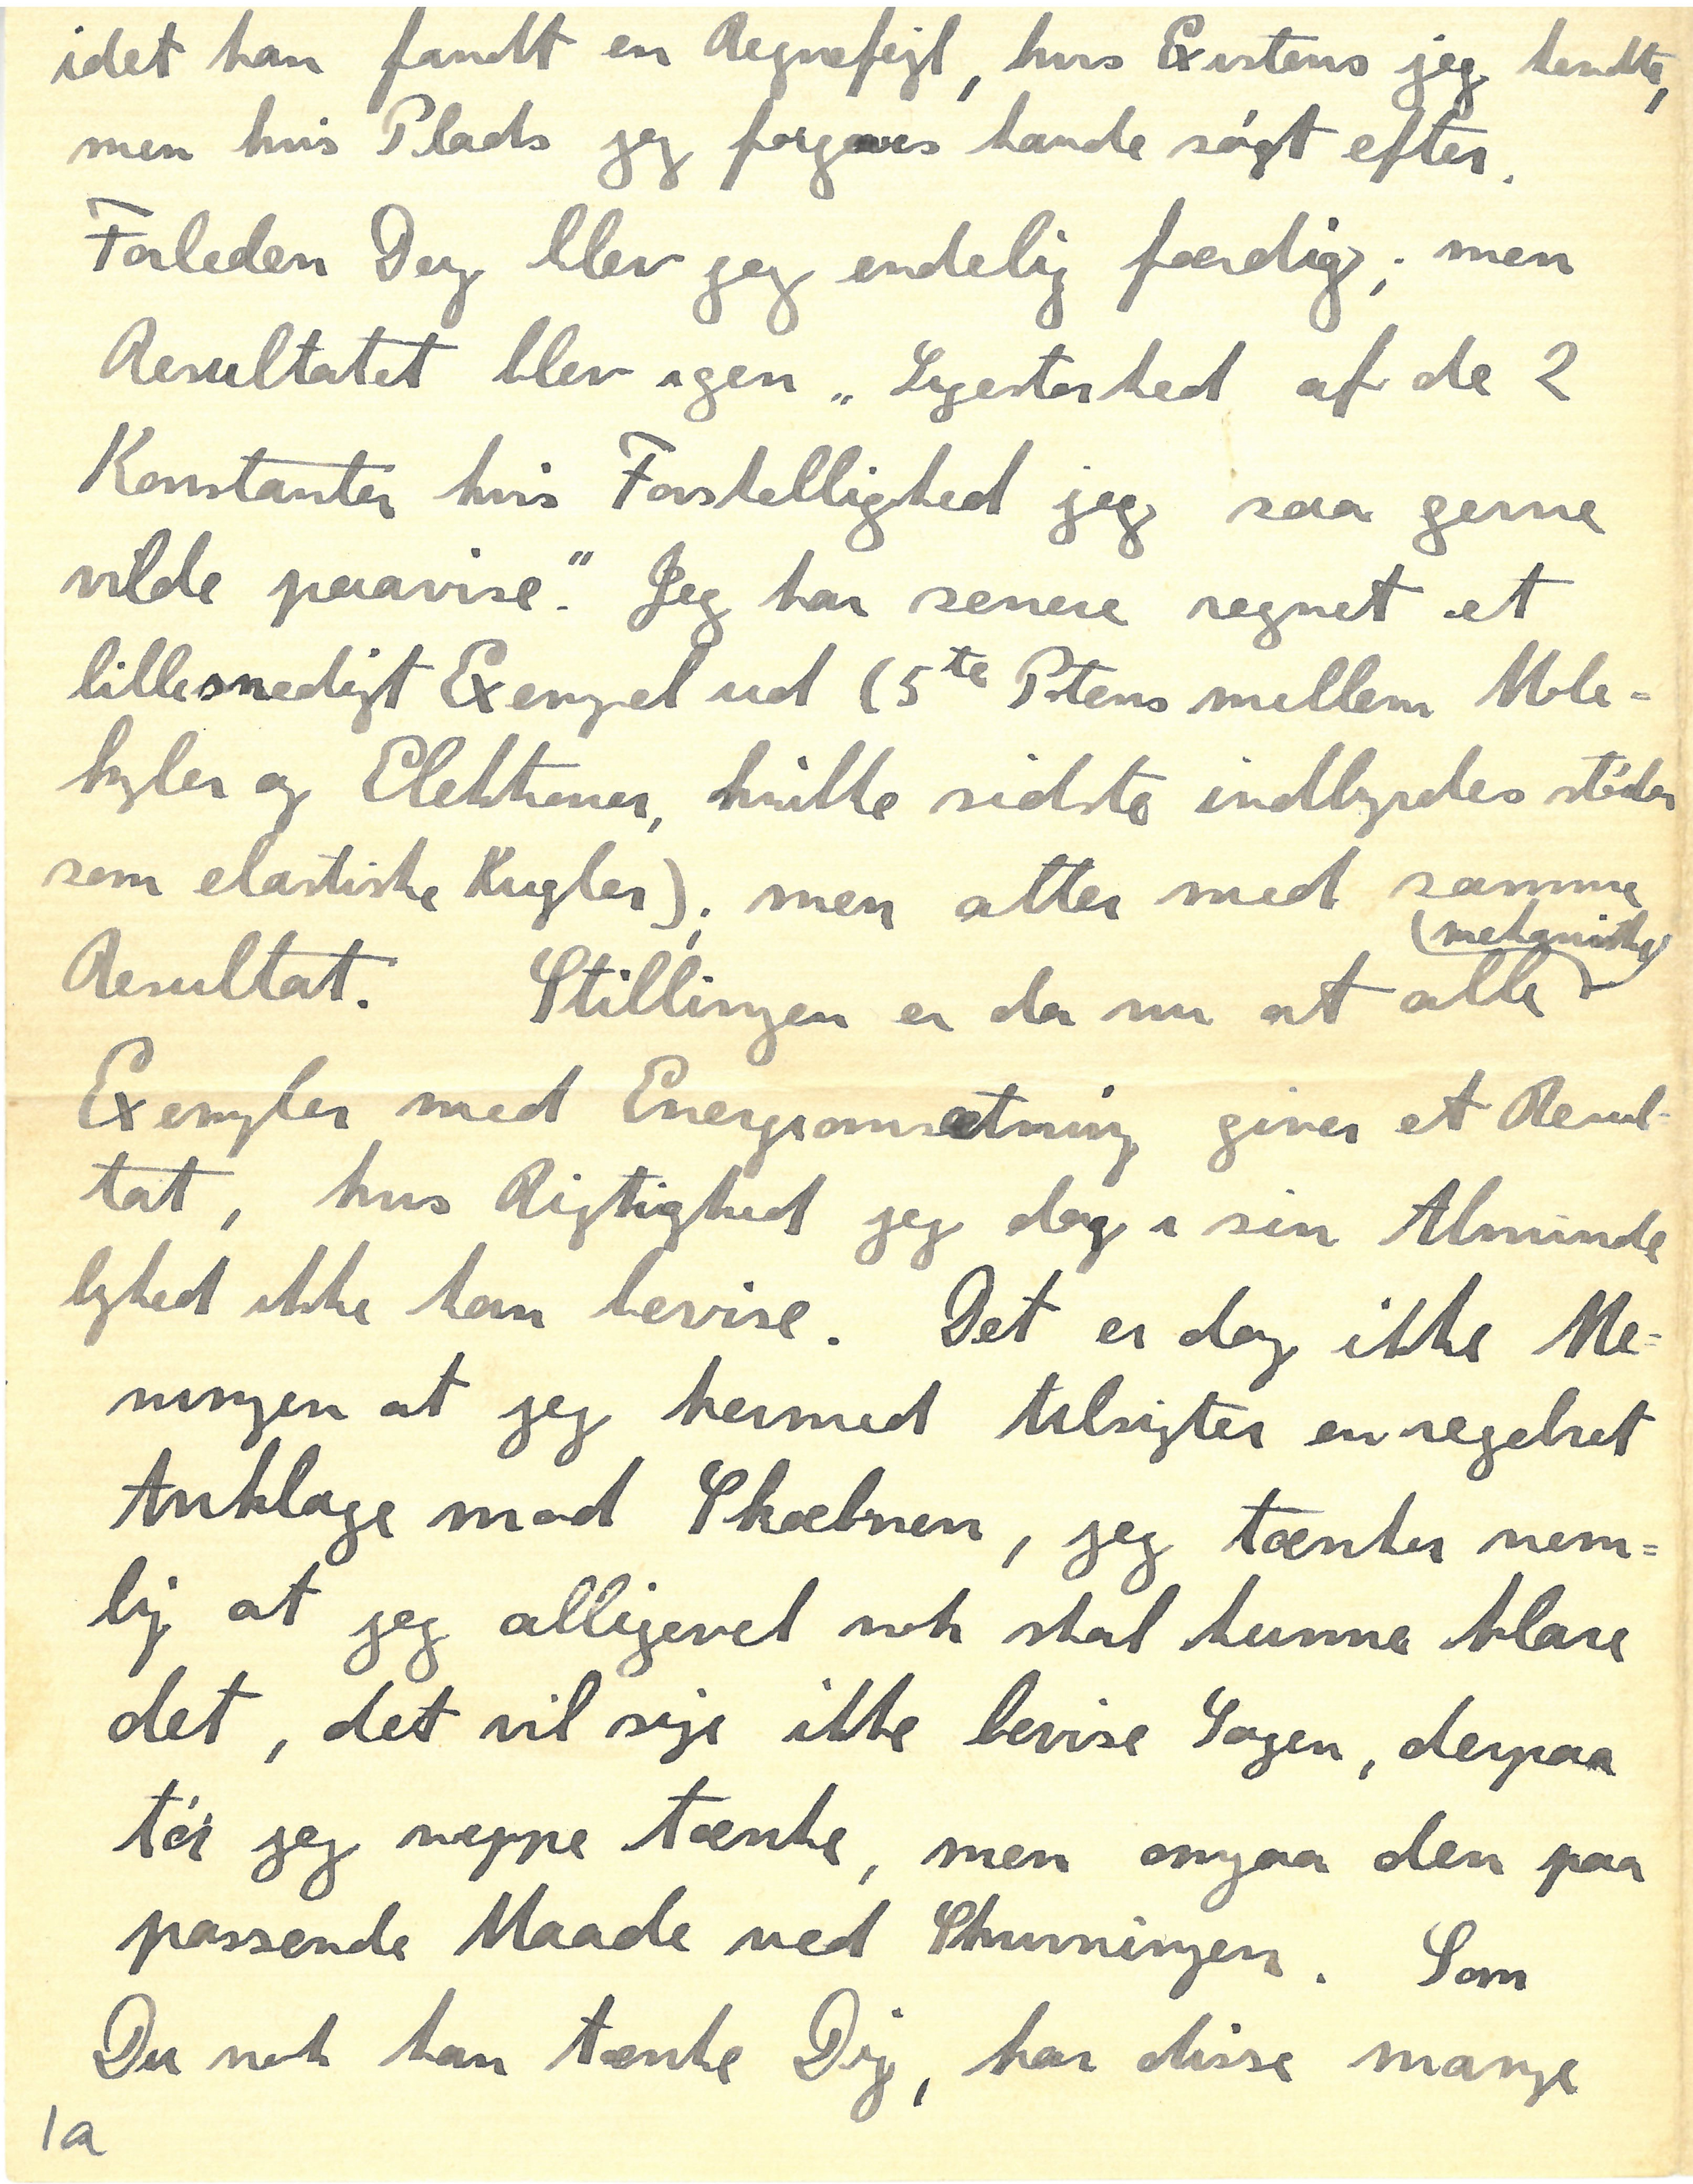 idet han fandt en Regnefejl, hvis Existens jeg kendte,
men hvis Plads jeg forgæves havde søgt efter.
Forleden Dag blev jeg endelig færdig; men
Resultatet blev igen „Ligestorhed af de 2
Konstanter hvis Forskellighed jeg saa gerne
vilde paavise." Jeg har senere regnet et
lille snedigt Exempel ud (5te Potens mellem Mole=
kyler og Elektroner, hvilke sidste indbyrdes støder
som elastiske Kugler); men atter med samme
Resultat. Stillingen er da nu at alle (mekaniske)
Exempler med Energiomsætning giver et Resul-
tat, hvis Rigtighed jeg dog i sin Alminde
lighed ikke kan bevise. Det er dog ikke Me=
ningen at jeg hermed tilsigter en regelret
Anklage mod Skæbnen, jeg tænker nem=
lig at jeg alligevel nok skal kunne klare
det, det vil sige ikke bevise Sagen, derpaa
tør jeg neppe tænke, men omgaa den paa
passende Maade ved Skrivningen. Som
Du nok kan tænke Dig, har disse mange
1a